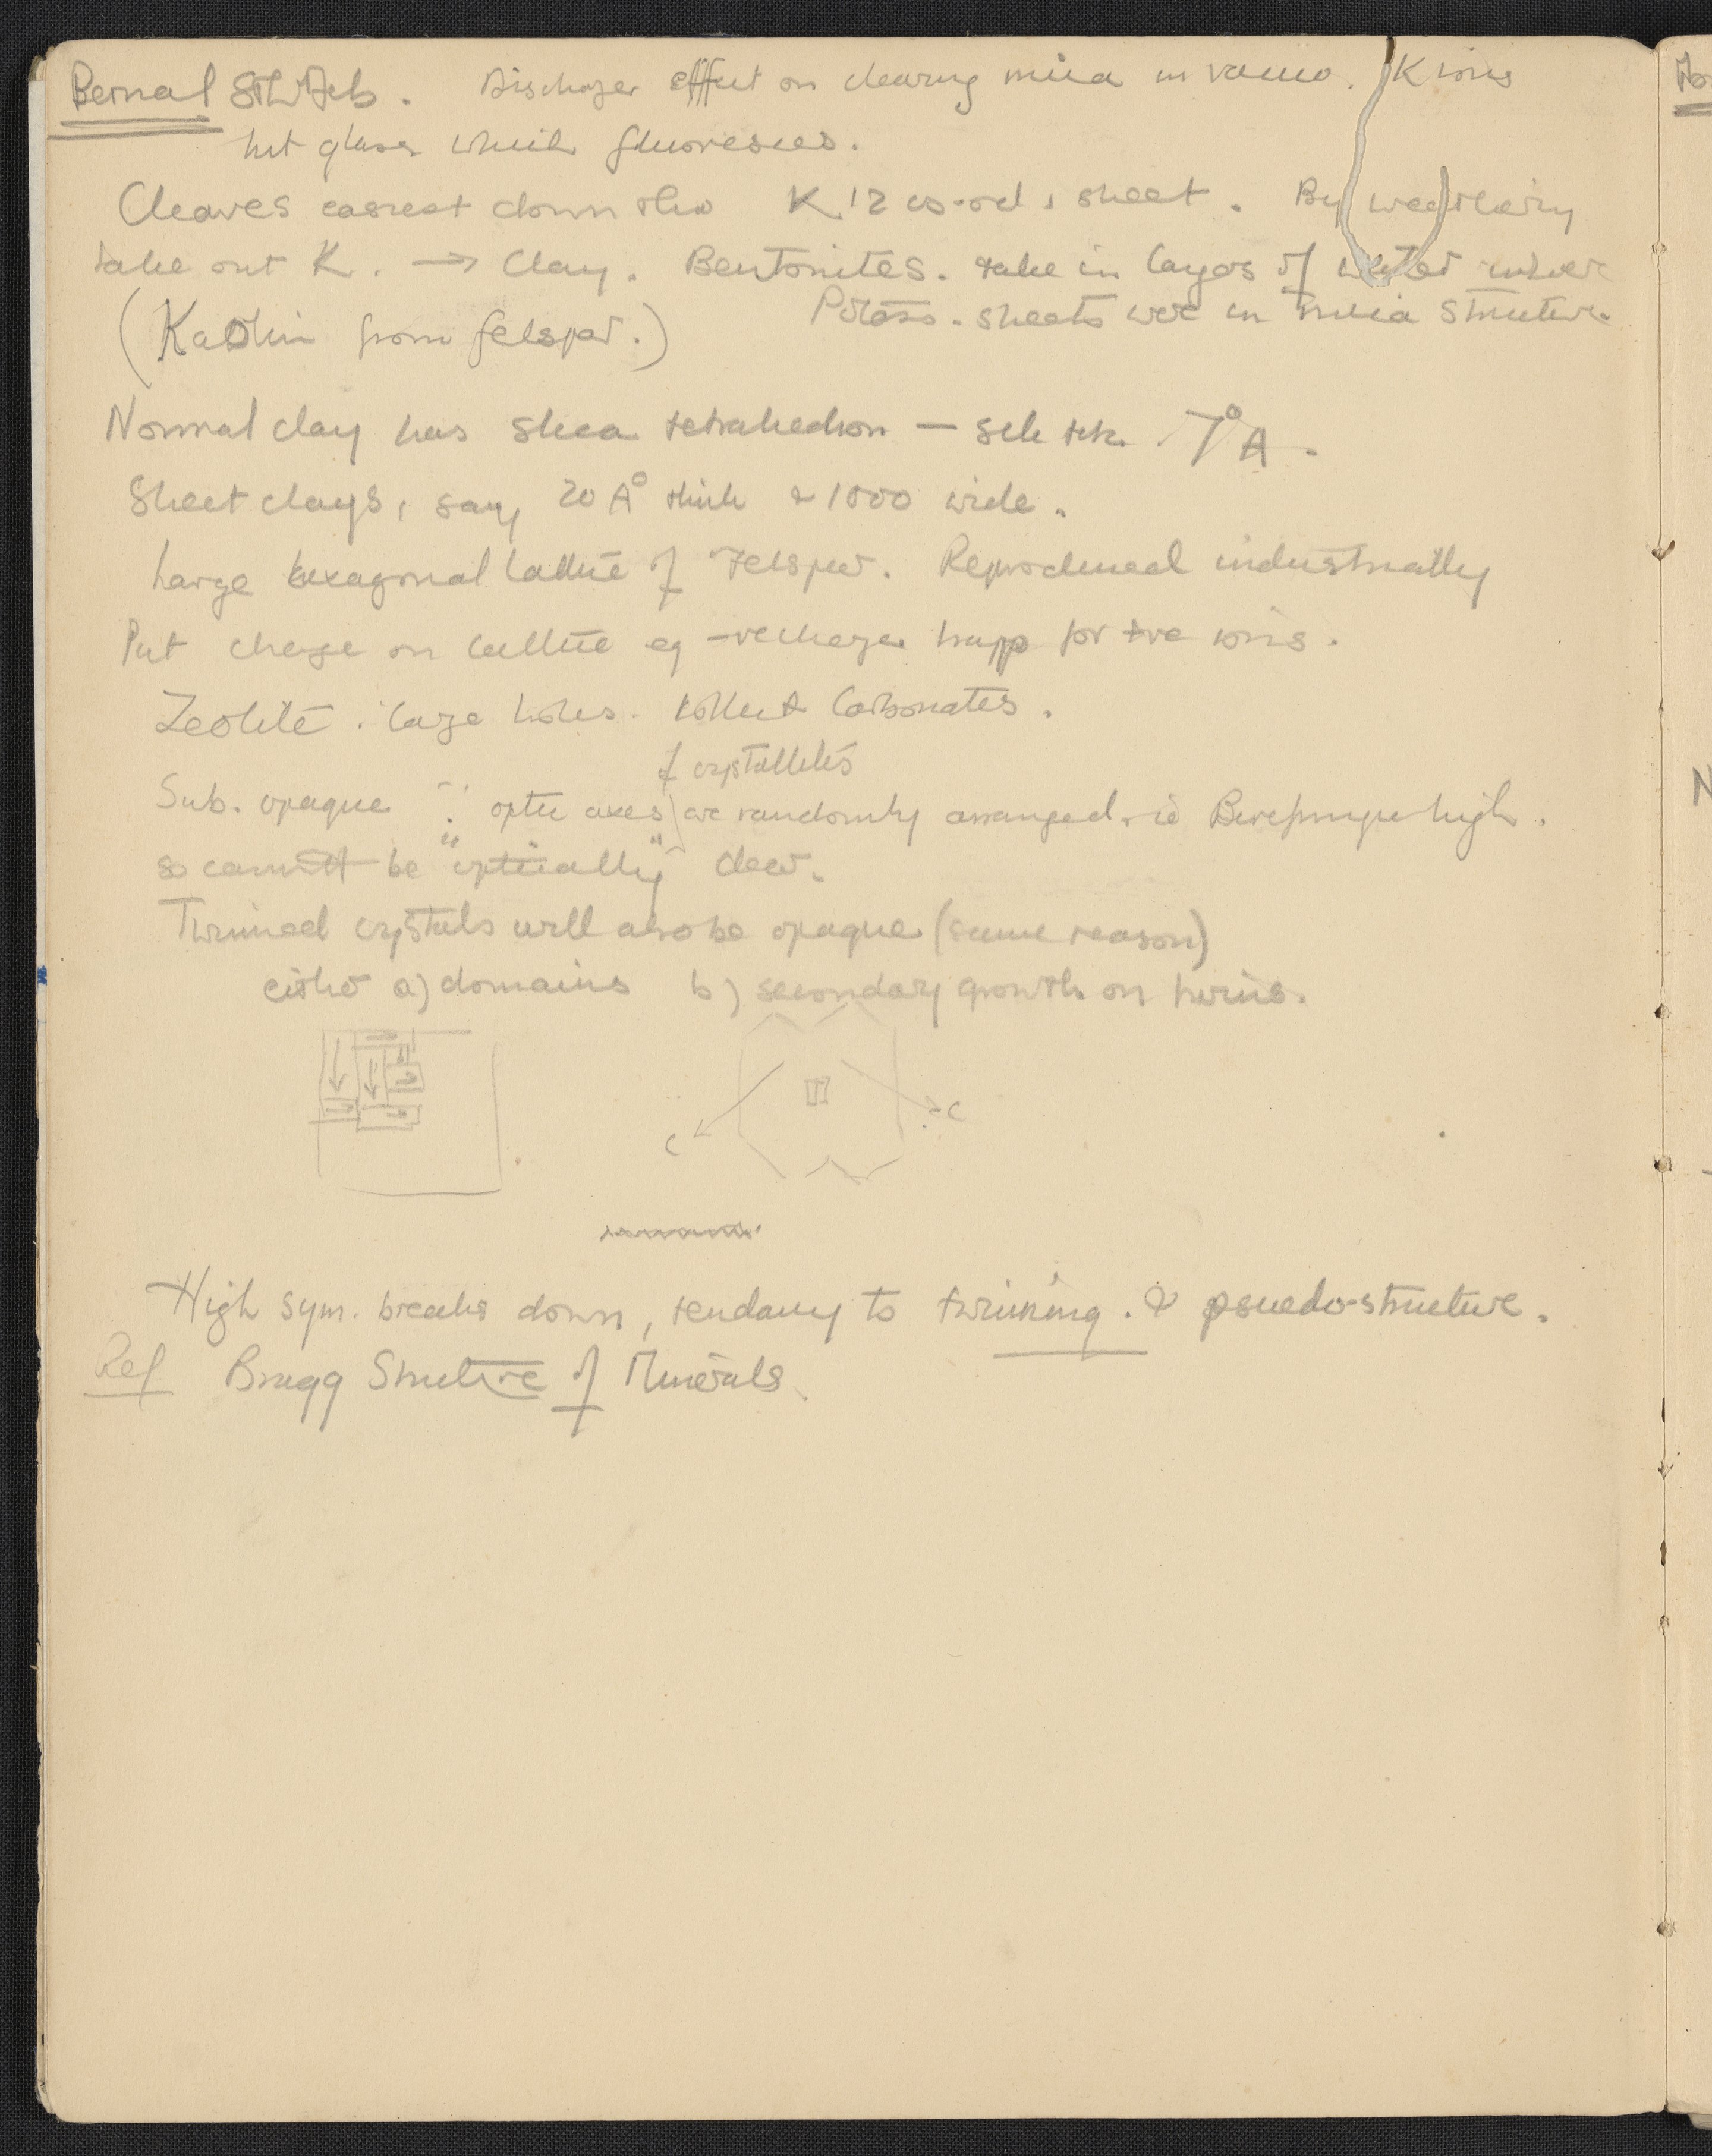 Bernal 8th Feb. Discharge effect on cleaving mica in vacuo. K ions
hit glass which fluoresces.
Cleaves easiest down the K 12 co-ord. sheet. By weathering
take out K. → Clay. Bentonites. take in layers of water where
Potass. sheets were in mica structure.
(Kaolin from felspar.)
Normal clay has silica tetrahedron — 7°A.
Sheet clays, say 20 A° thick & 1000 wide.
Large hexagonal lattice of Felspar. Reproduced industrially
Put charge on lattice eg -ve charge trapp for +ve ions.
Zeolite. large holes. Collect Carbonates.
of crystallites
Sub. opaque ∵ optic axes are randomly arranged. ie Birefringe high.
so cannot be "optically" clear.
Twinned crystals will also be opaque (same reason)
either a) domains b) secondary growth on twins.
c c
High sym. breaks down, tendancy to twinning. & psuedo-structure.
Ref Bragg Structure of Minerals.